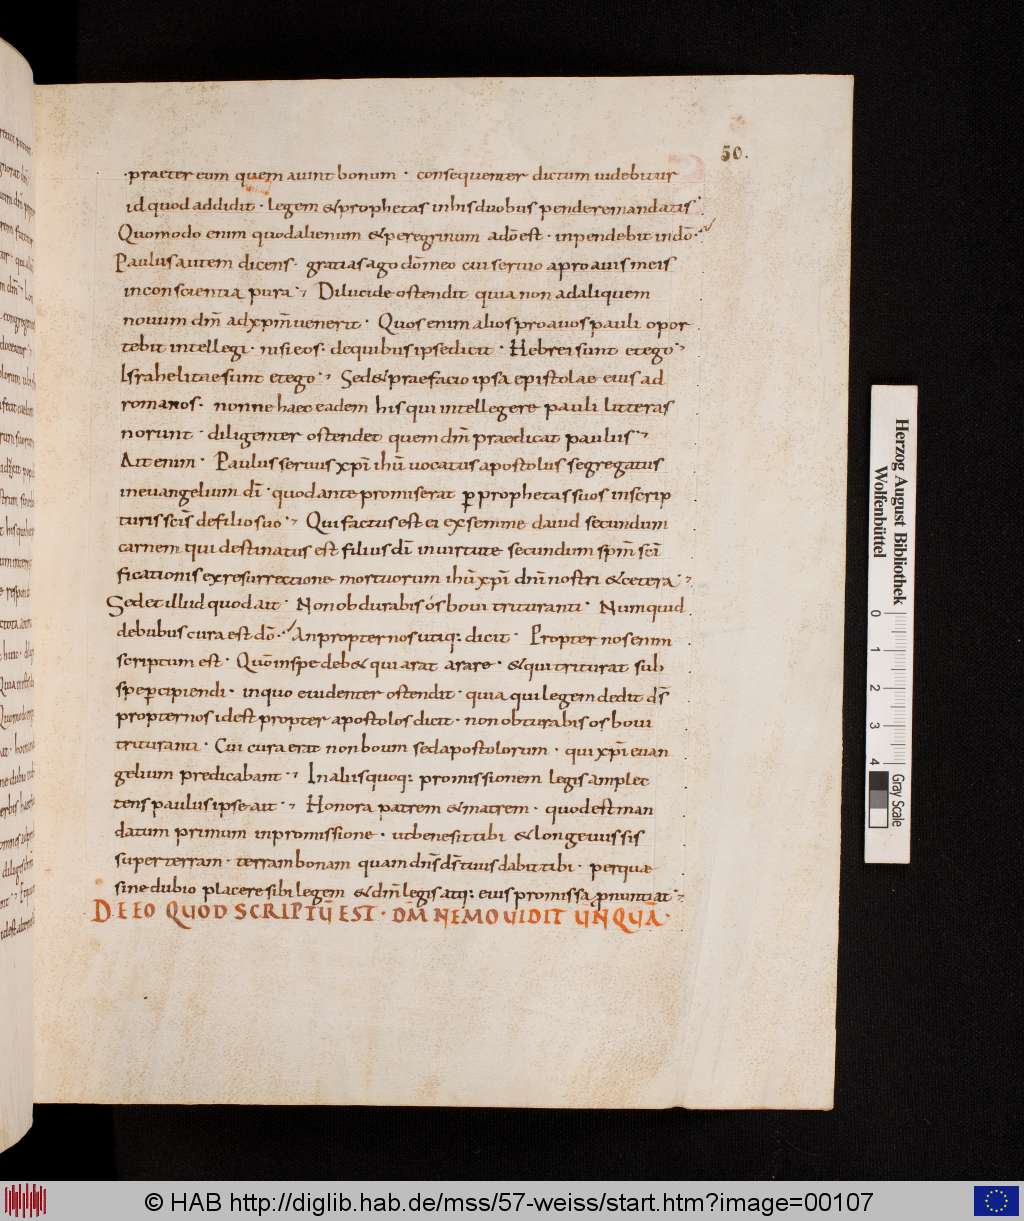 50.
·praeter eum quem aiunt bonum · consequenter dictum uidebitur
id quod addidit · legem & prophetas in his duobus pendere mandatis
Quomodo enim quod alienum & peregrinum a dõ est · in pendebit in dõ·
Paulus autem dicens · gratias ago dõ meo cui seruio a proauis meis
in conscientia pura · Dilucide ostendit quia non ad aliquem
nouum dm̃ ad xpm̃ uenerit · Quos enim alios proauos pauli opor
tebit intellegi · nisi eos · de quibus ipse dicit · Hebrei sunt et ego
Israhelitae sunt et ego · Sed & praefacio ipsa epistolae eius ad
romanos · nonne haec eadem his qui intellegere pauli litteras
norunt · diligenter ostendet quem dm̃ praedicat paulus
Ait enim · Paulus seruus xpı̃ ihũ uocatus apostolus segregatus
in euangelium dı̃ · quod ante promiserat ꝑ prophetas suos in scrip
turis scı̃s de filio suo · Qui factus est ei ex semine dauid secundum
carnem qui destinatus est filius dı̃ in uirtute secundum spm̃ scı̃
ficationis ex resurrectione mortuorum ihũ xpı̃ dnı̃ nostri & cetera
Sed et illud quod ait · Non obdurabis ós boui trituranti · Numquid
de bubus cura est dõ · An propter nos utiq; dicit · Propter nos enim
scriptum est · Quõ in spe deb& qui arat arare · & qui triturat sub
spe ꝑcipiendi · in quo euidenter ostendit · quia qui legem dedit ds̃
propter nos id est propter apostolos dicit · non obturabis os boui
trituranti · Cui cura erat non boum sed apostolorum · qui xpı̃ euan
gelium predicabant · In aliis quoq; promissionem legis amplec
tens paulus ipse ait · Honora patrem & matrem · quod est man
datum primum in promissione · ut bene sit tibi & longeuus sis
super terram · terram bonam quam dns̃ ds̃ tuus dabit tibi · per quae
sine dubio placere sibi legem & dm̃ legis atq; eius promissa ꝓnuntiat
DE EO QUOD SCRIPTŨ EST · DM̃ NEMO UIDIT UNQUÃ·
Herzog August Bibliothek
Wolfenbüttel
0 1 2 3 4
Gray Scale
© HAB http://diglib.hab.de/mss/57-weiss/start.htm?image=00107